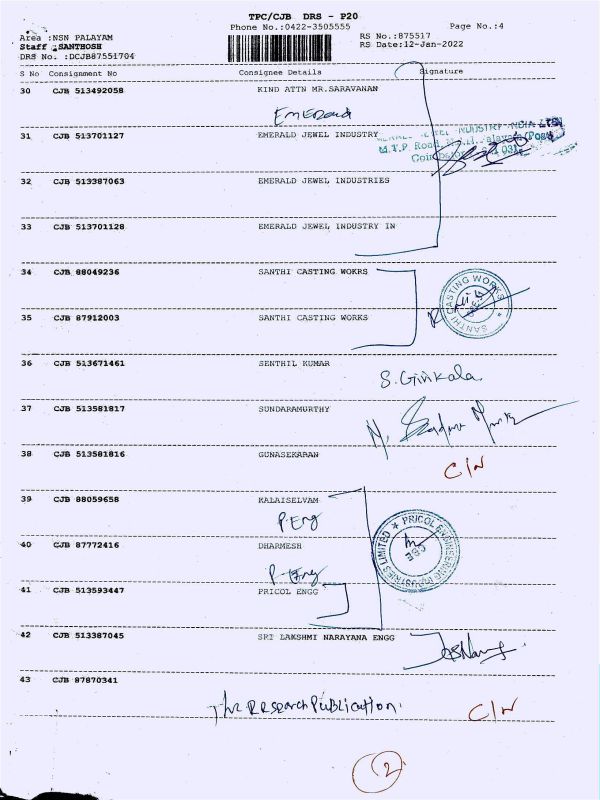 TPC/CJB DRS - P20
Phone No.:0422-3505555 Page No.:4
Area :NSN PALAYAM RS No.:875517
Staff :SANTHOSH RS Date:12-Jan-2022
DRS No. :DCJB87551704
S No Consignment No Consignee Details Signature
30 CJB 513492058 KIND ATTN MR.SARAVANAN
Emerald
31 CJB 513701127 EMERALD JEWEL INDUSTRY
JEWEL INDUSTRY INDIA LTD
M.T.P. Road
32 CJB 513387063 EMERALD JEWEL INDUSTRIES
33 CJB 513701128 EMERALD JEWEL INDUSTRY IN
34 CJB 88049236 SANTHI CASTING WOKRS
SANTHI CASTING WORKS
35 CJB 87912003 SANTHI CASTING WORKS
36 CJB 513671461 SENTHIL KUMAR
S. Girikala
37 CJB 513581817 SUNDARAMURTHY
38 CJB 513581816 GUNASEKARAN
C/N
39 CJB 88059658 KALAISELVAM
P.Eng
PRICOL ENGINEERING INDUSTRIES LIMITED
CBE
40 CJB 87772416 DHARMESH
P-Eng
41 CJB 513593447 PRICOL ENGG
42 CJB 513387045 SRI LAKSHMI NARAYANA ENGG
43 CJB 87870341
The Research Publication. C/N
2